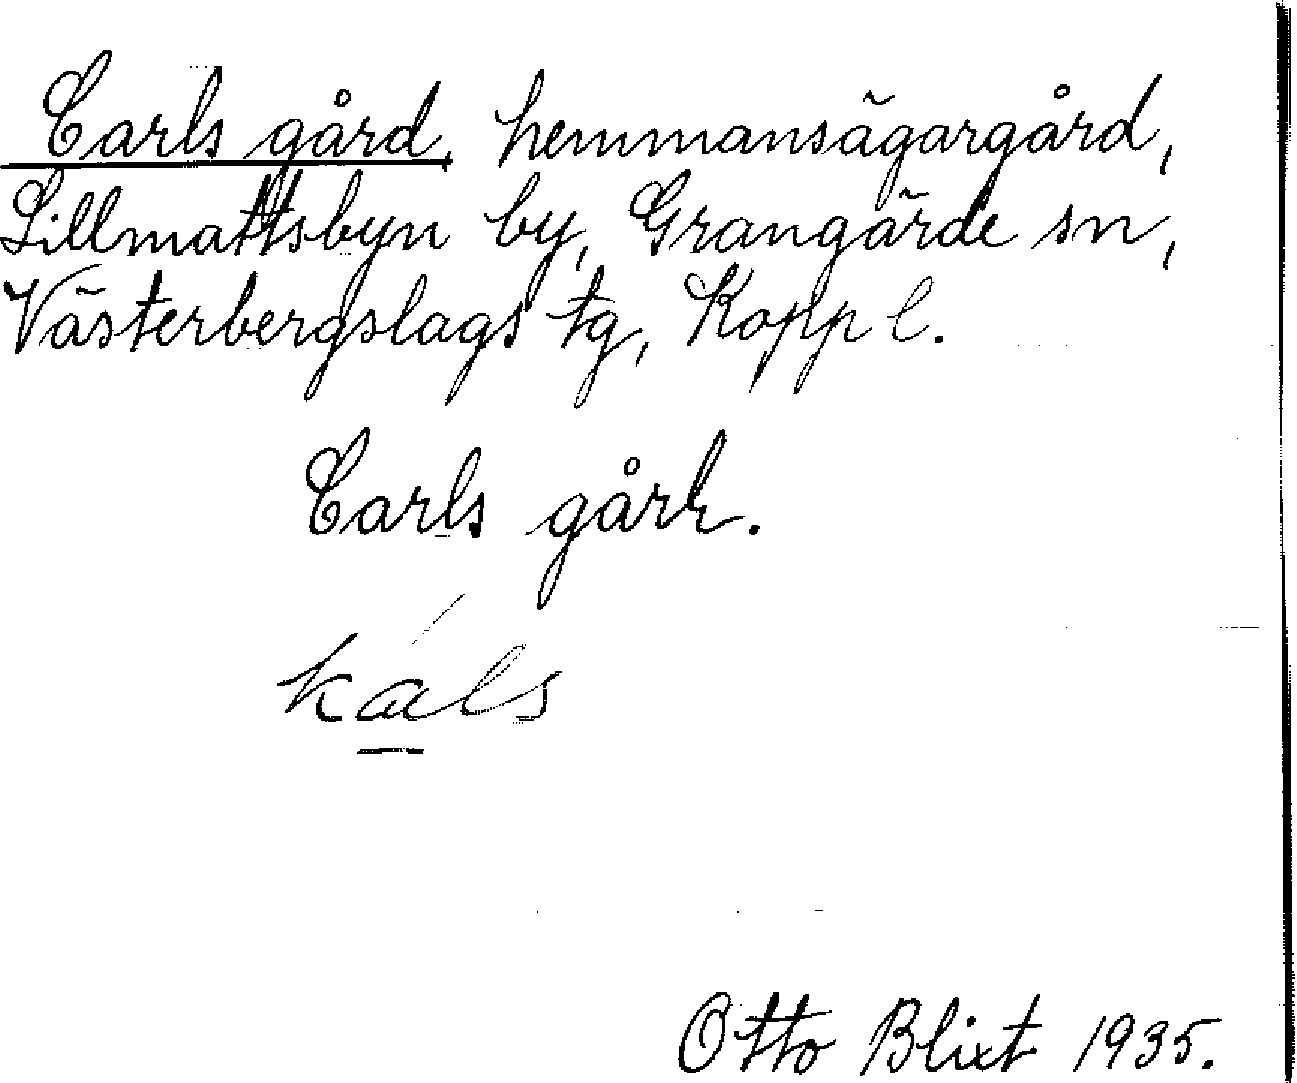 Carls gård, hemmansägargård,
Lillmattsbyn by, Grangärde sn,
Västerbergslags tg, Kopp l.
Carls gårk.
káls
Otto Blixt 1935.